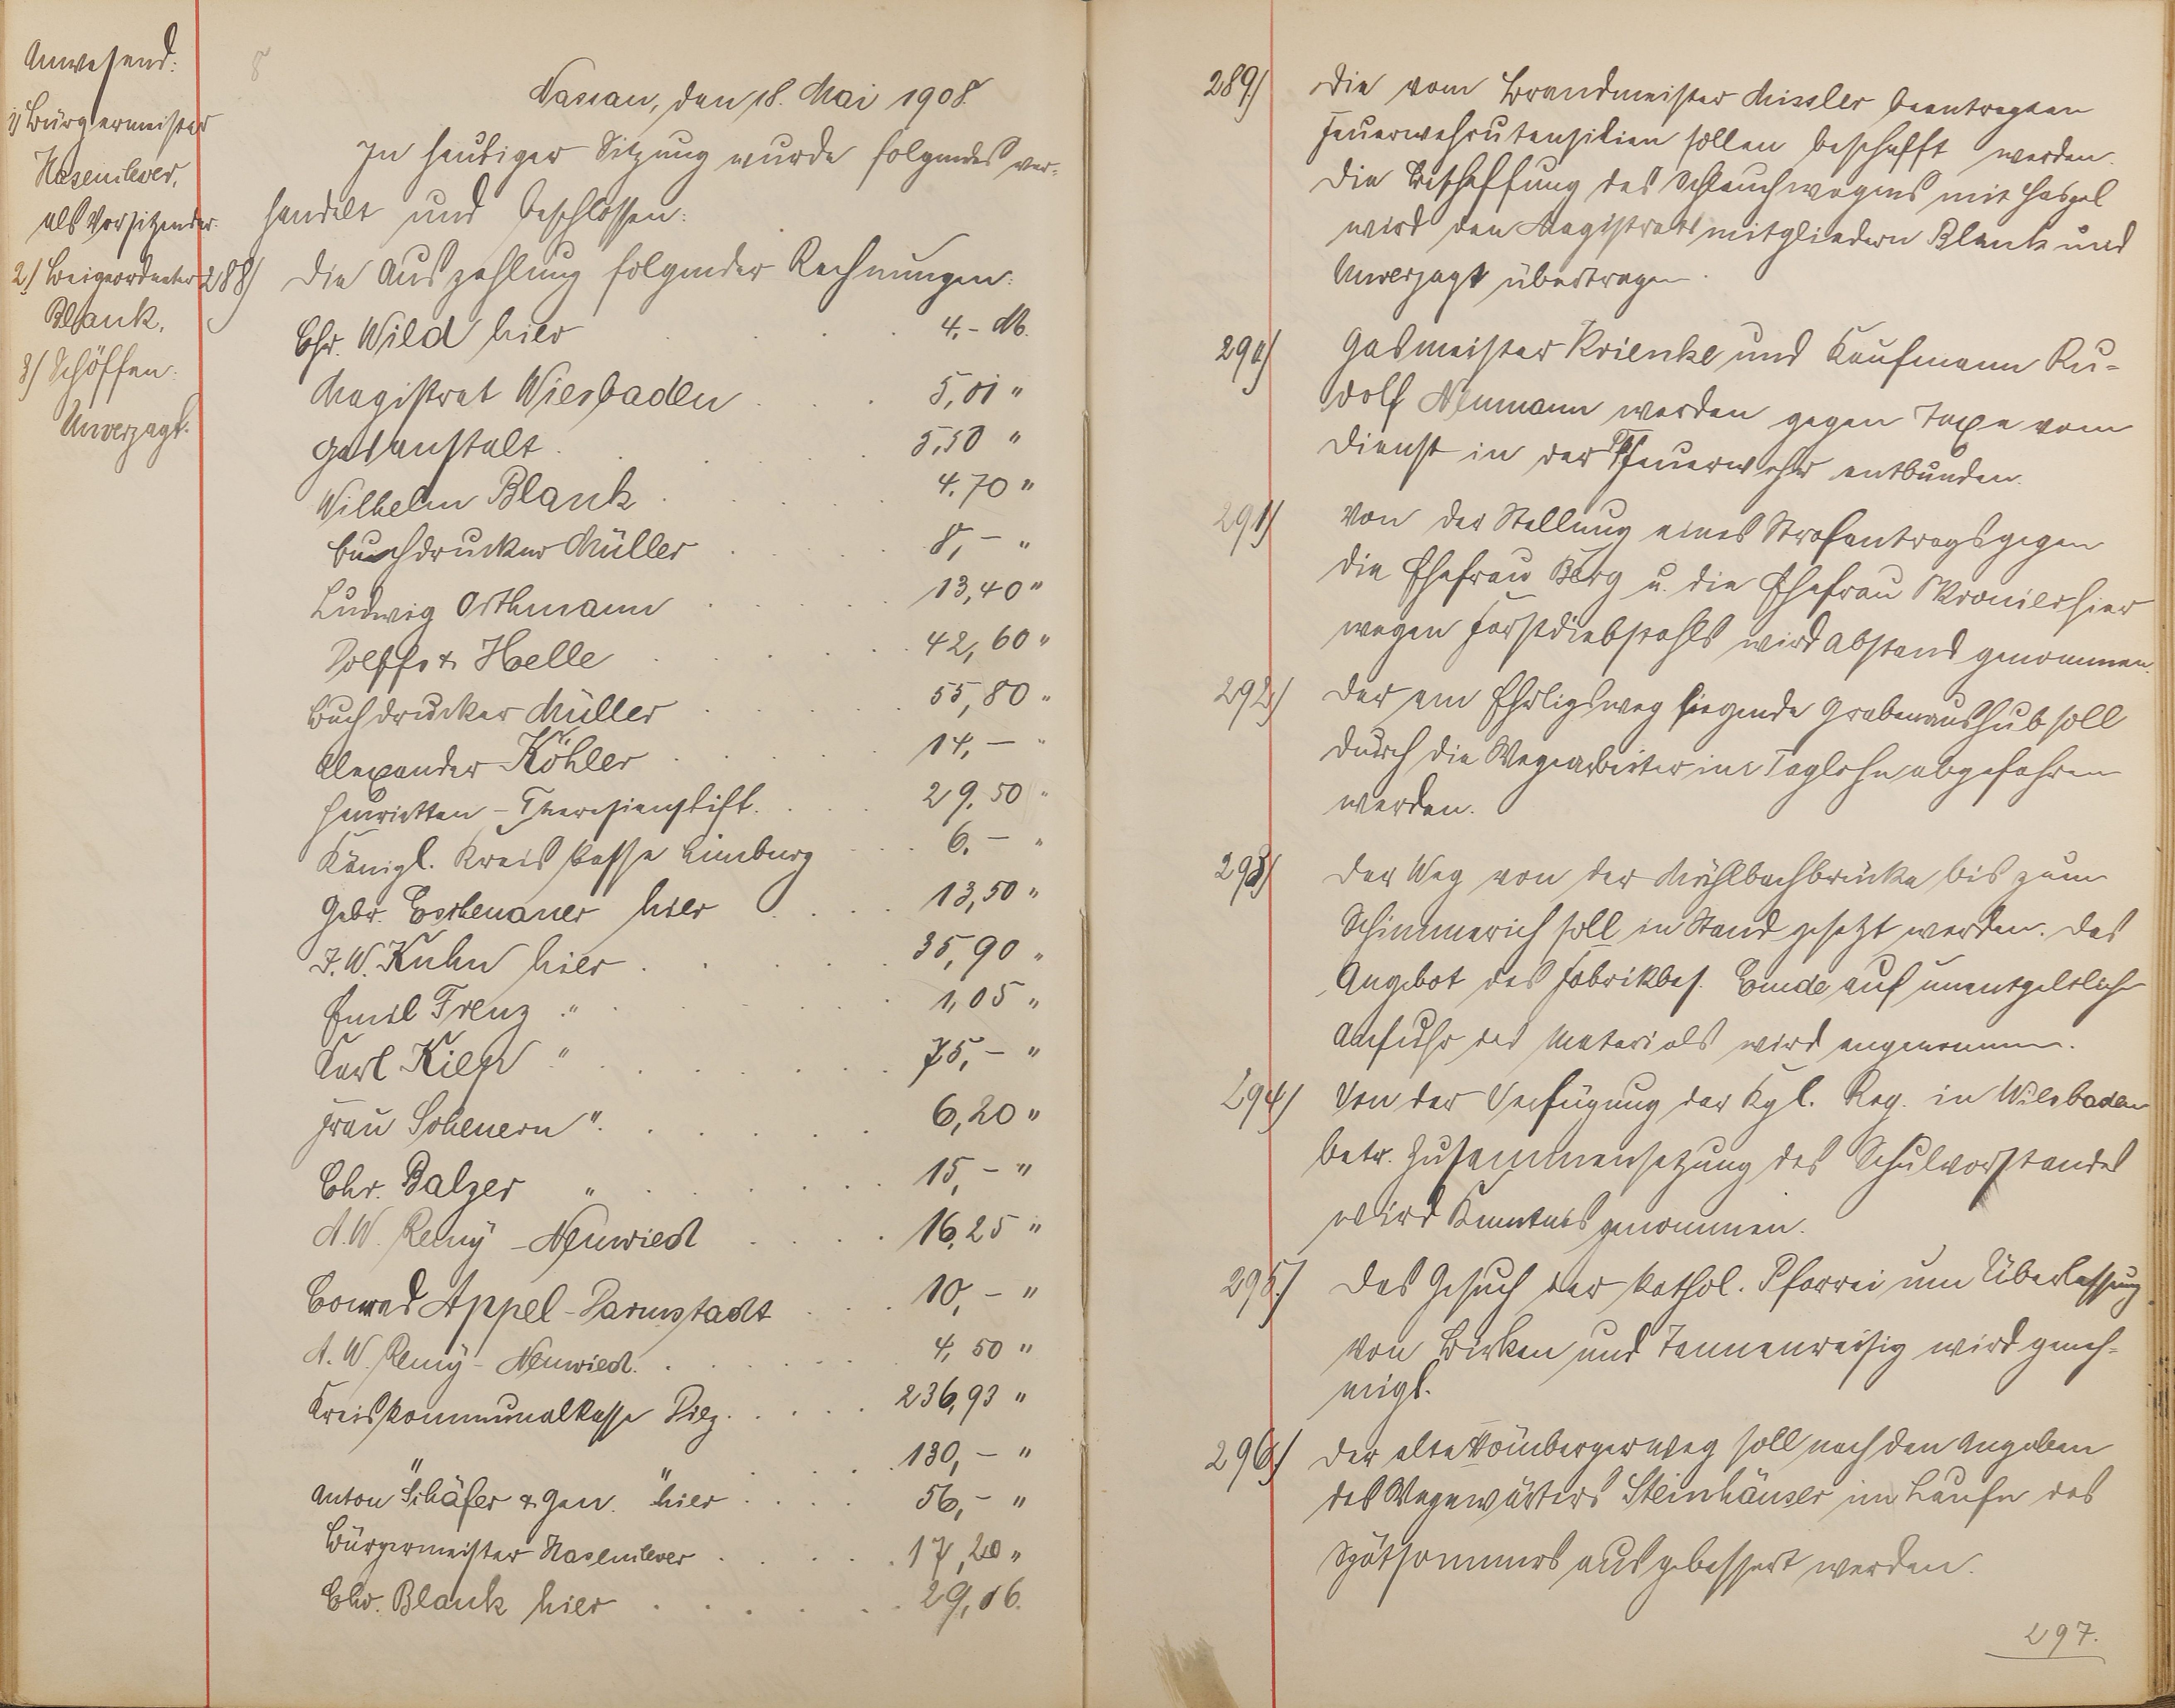 Anwesend:
1) Bürgermeister
Hasenclever,
als Vorsitzender.
2.) Beigeordneter
Blank.
3) Schöffen:
Unverzagt.
Nassau, den 18. Mai 1908.
In heutiger Sitzung wurde folgendes ver-
handelt und beschlossen:
288) Die Auszahlung folgender Rechnungen:
Chr. Wild hier . . . 4,- M.
Magistrat Wiesbaden . . . 5,01 "
Gasanstalt . . . 5,50 "
Wilhelm Blank . . . 4,70 "
Buchdrucker Müller . . . 8,- "
Ludwig Orthmann . . . 13,40 "
Dolffs & Helle . . . 42,60 "
Buchdrucker Müller . . . 55,80 "
Alexander Köhler . . . 14,- "
Henrietten-Theresienstift . . . 29,50 "
Königl. Kreiskasse Limburg . . . 6,- "
Gebr. Eschenauer hier . . . 13,50 "
J. W. Kuhn hier . . . 35,90 "
Emil Trenz " . . . 1,05 "
Karl Kilp " . . . 75,- "
Frau Scheuern " . . . 6,20 "
Chr. Balzer " . . . 15,- "
A. W. Remy - Neuwied . . . 16,25 "
Conrad Appel - Darmstadt . . . 10,- "
A. W. Remy - Neuwied . . . 4,50 "
Kreiskommunalkasse Diez . . . 236,93 "
" " . . . 130,- "
Anton Schäfer & Gen. hier . . . 56,- "
Bürgermeister Hasenclever . . . 17,20 "
Chr. Blank hier . . . 29,16.
289) Die vom Brandmeister Missler beantragten
Feuerwehrutensilien sollen beschafft werden.
Die Beschaffung des Schlauchwagens mit Haspel
wird den Magistratsmitgliedern Blank und
Unverzagt übertragen.
290) Gasmeister Krienke und Kaufmann Ru-
dolf Neumann werden gegen Taxe vom
Dienst in der Pfeuerwehr entbunden.
291) Von der Stellung eines Strafantrags gegen
die Ehefrau Berg u. die Ehefrau hier
wegen Forstdiebstahls wird Abstand genommen.
292) Der am Ehrligsweg liegende Grabenaushub soll
durch die Wegearbeiter im Taglohn abgefahren
werden.
293) Der Weg von der Mühlbachbrücke bis zum
Schimmerich soll in Stand gesetzt werden. Das
Angebot des Fabrikbes. Emde auf unentgeltliche
Anfuhr des Materials wird angenommen.
294) Von der Verfügung der Kgl. Reg. in Wiesbaden
betr. Zusammensetzung des Schulvorstandes
wird Kenntnis genommen.
295.) Das Gesuch der kathol. Pfarrei um Überlassung
von Birken und Tannenreisig wird geneh-
migt.
296.) Der alte Hömbergerweg soll nach den Angaben
des Wegewärters Steinhäuser im Laufe des
Spätsommers ausgebessert werden.
297.